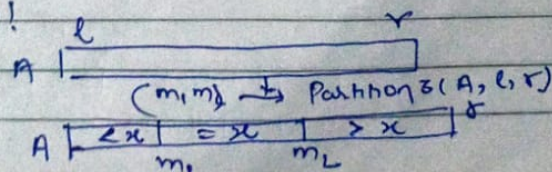 !
l r
A
(m1, m2) ← Partition3(A, l, r)
A <x =x >x r
m1 m2